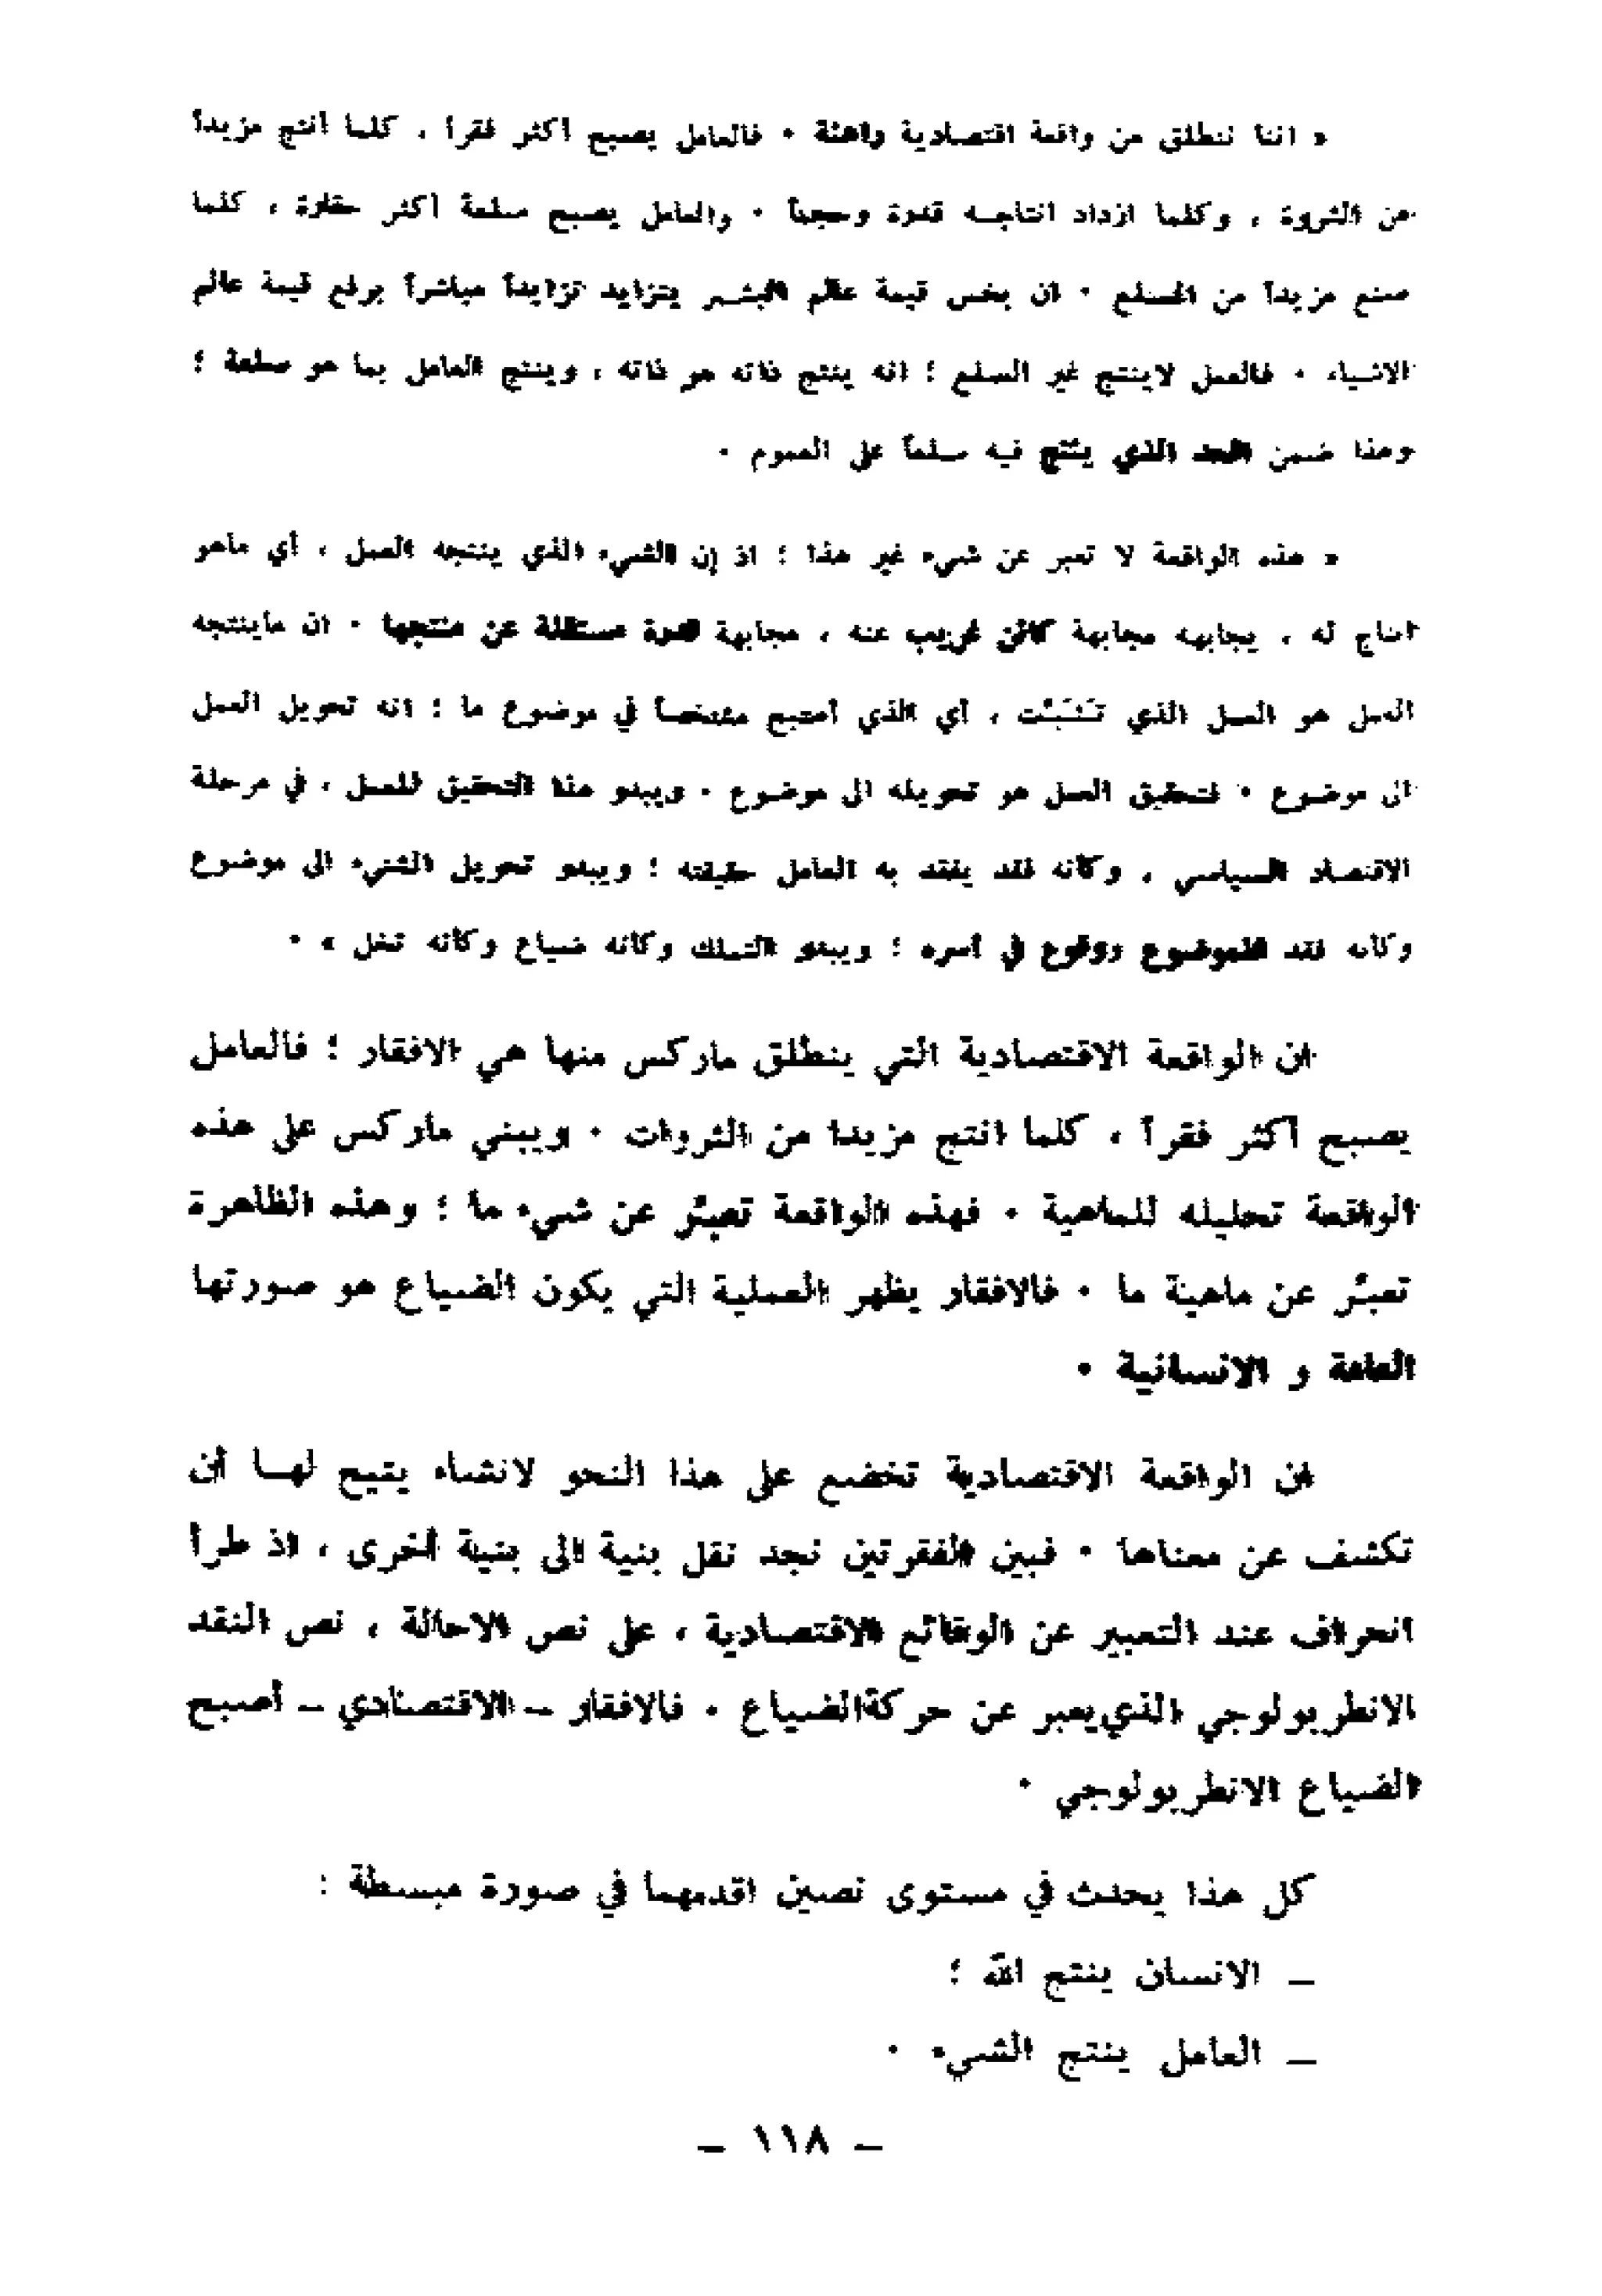 « اننا ننطلق من واقعة اقتصادية راهنة ٠ فالعامل يصبح أكثر فقراً ، كلما أنتج مزيداً
من الثروة ، وكلما ازداد انتاجه قدرة وحجماً ٠ والعامل يصبح سلعة أكثر حقارة ، كلما
صنع مزيداً من السلع ٠ ان بخس قيمة عالم البشر يتزايد تزايداً مباشراً برفع قيمة عالم
الاشياء ٠ فالعمل لاينتج غير السلع ؛ انه ينتج ذاته هو ذاته ، وينتج العامل بما هو سلعة ؛
وهذا ضمن الحد الذي ينتج فيه سلعاً على العموم ٠
« هذه الواقعة لا تعبر عن شيء غير هذا ؛ اذ إن الشيء الذي ينتجه العمل ، أي ماهو
انتاج له ، يجابهه مجابهة كائن غريب عنه ، مجابهة قدرة مستقلة عن منتجها ٠ ان ماينتجه
العمل هو العمل الذي تثبَّت ، أي الذي أصبح مشخصاً في موضوع ما ؛ انه تحويل العمل
الى موضوع ٠ فتحقيق العمل هو تحويله الى موضوع ٠ ويبدو هذا التحقيق للعمل ، في مرحلة
الاقتصاد السياسي ، وكأنه فقد يفقد به العامل حقيقته ؛ ويبدو تحويل الشيء الى موضوع
وكأنه فقد للموضوع ووقوع في أسره ؛ ويبدو التملك وكأنه ضياع وكأنه تخل » ٠
ان الواقعة الاقتصادية التي ينطلق ماركس منها هي الافقار ؛ فالعامل
يصبح أكثر فقراً ، كلما انتج مزيدا من الثروات ٠ ويبني ماركس على هذه
الواقعة تحليله للماهية ٠ فهذه الواقعة تعبّر عن شيء ما ؛ وهذه الظاهرة
تعبّر عن ماهية ما ٠ فالافقار يظهر العملية التي يكون الضياع هو صورتها
العامة و الانسانية ٠
ان الواقعة الاقتصادية تخضع على هذا النحو لانشاء يتيح لهـا أن
تكشف عن معناها ٠ فبين الفقرتين نجد نقل بنية الى بنية أخرى ، اذ طرأ
انحراف عند التعبير عن الوقائع الاقتصادية ، على نص الاحالة ، نص النقد
الانطربولوجي الذي يعبر عن حركة الضياع ٠ فالافقار - الاقتصادي - أصبح
الضياع الانطربولوجي ٠
كل هذا يحدث في مستوى نصين اقدمهما في صورة مبسطة :
- الانسان ينتج الله ؛
- العامل ينتج الشيء ٠
- ١١٨ -